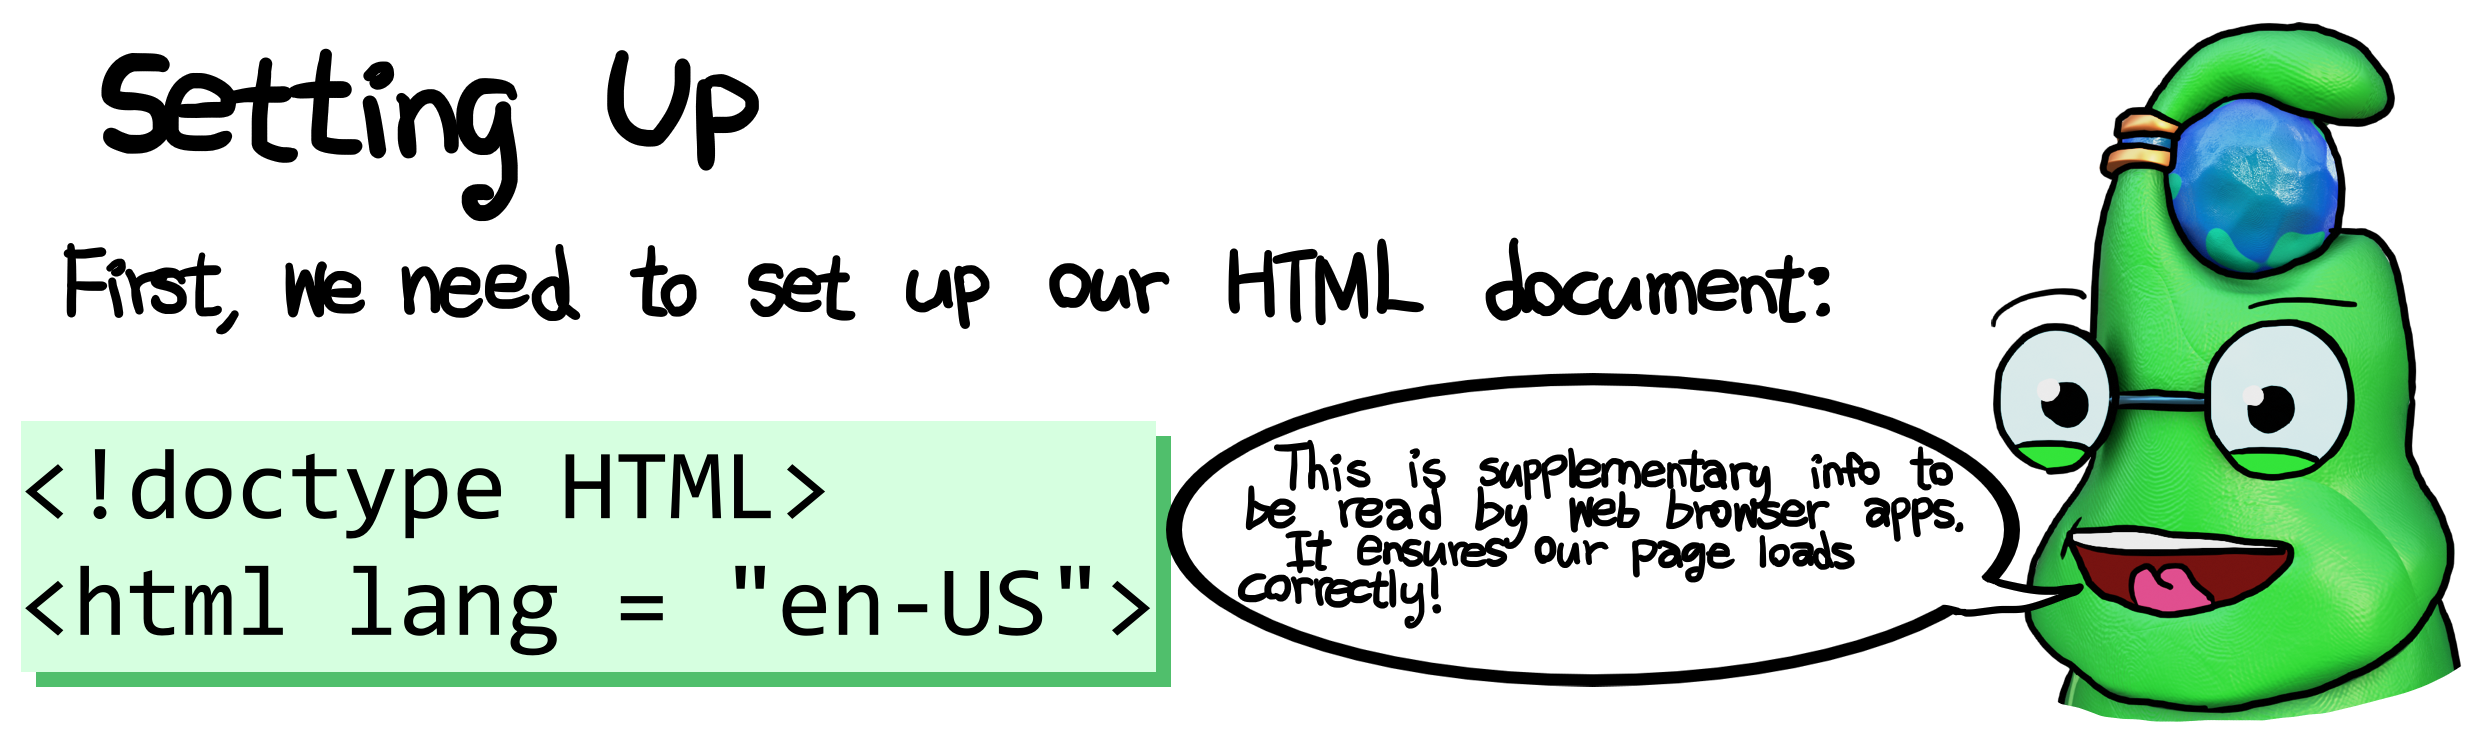 Setting Up
First, we need to set up our HTML document:
<!doctype HTML>
<html lang = "en-US">
This is supplementary info to
be read by web browser apps.
It ensures our page loads
correctly!